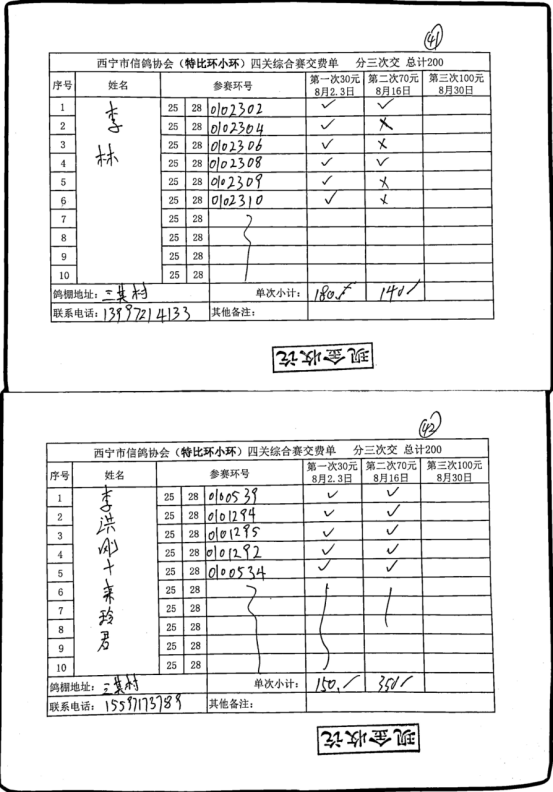 41
西宁市信鸽协会（特比环小环）四关综合赛交费单 分三次交 总计200
序号 姓名 参赛环号 第一次30元 8月2.3日 第二次70元 8月16日 第三次100元 8月30日
李林
1 25 28 0102302 ✓ ✓
2 25 28 0102304 ✓ ×
3 25 28 0102306 ✓ ×
4 25 28 0102308 ✓ ✓
5 25 28 0102309 ✓ ×
6 25 28 0102310 ✓ ×
7 25 28
8 25 28
9 25 28
10 25 28
鸽棚地址：三其村 单次小计：180 140
联系电话：13997214133 其他备注：
现金收讫
42
西宁市信鸽协会（特比环小环）四关综合赛交费单 分三次交 总计200
序号 姓名 参赛环号 第一次30元 8月2.3日 第二次70元 8月16日 第三次100元 8月30日
李洪刚十来玲君
1 25 28 0100539 ✓ ✓
2 25 28 0101294 ✓ ✓
3 25 28 0101295 ✓ ✓
4 25 28 0101292 ✓ ✓
5 25 28 0100534 ✓ ✓
6 25 28
7 25 28
8 25 28
9 25 28
10 25 28
鸽棚地址：三其村 单次小计：150 350
联系电话：15597173789 其他备注：
现金收讫